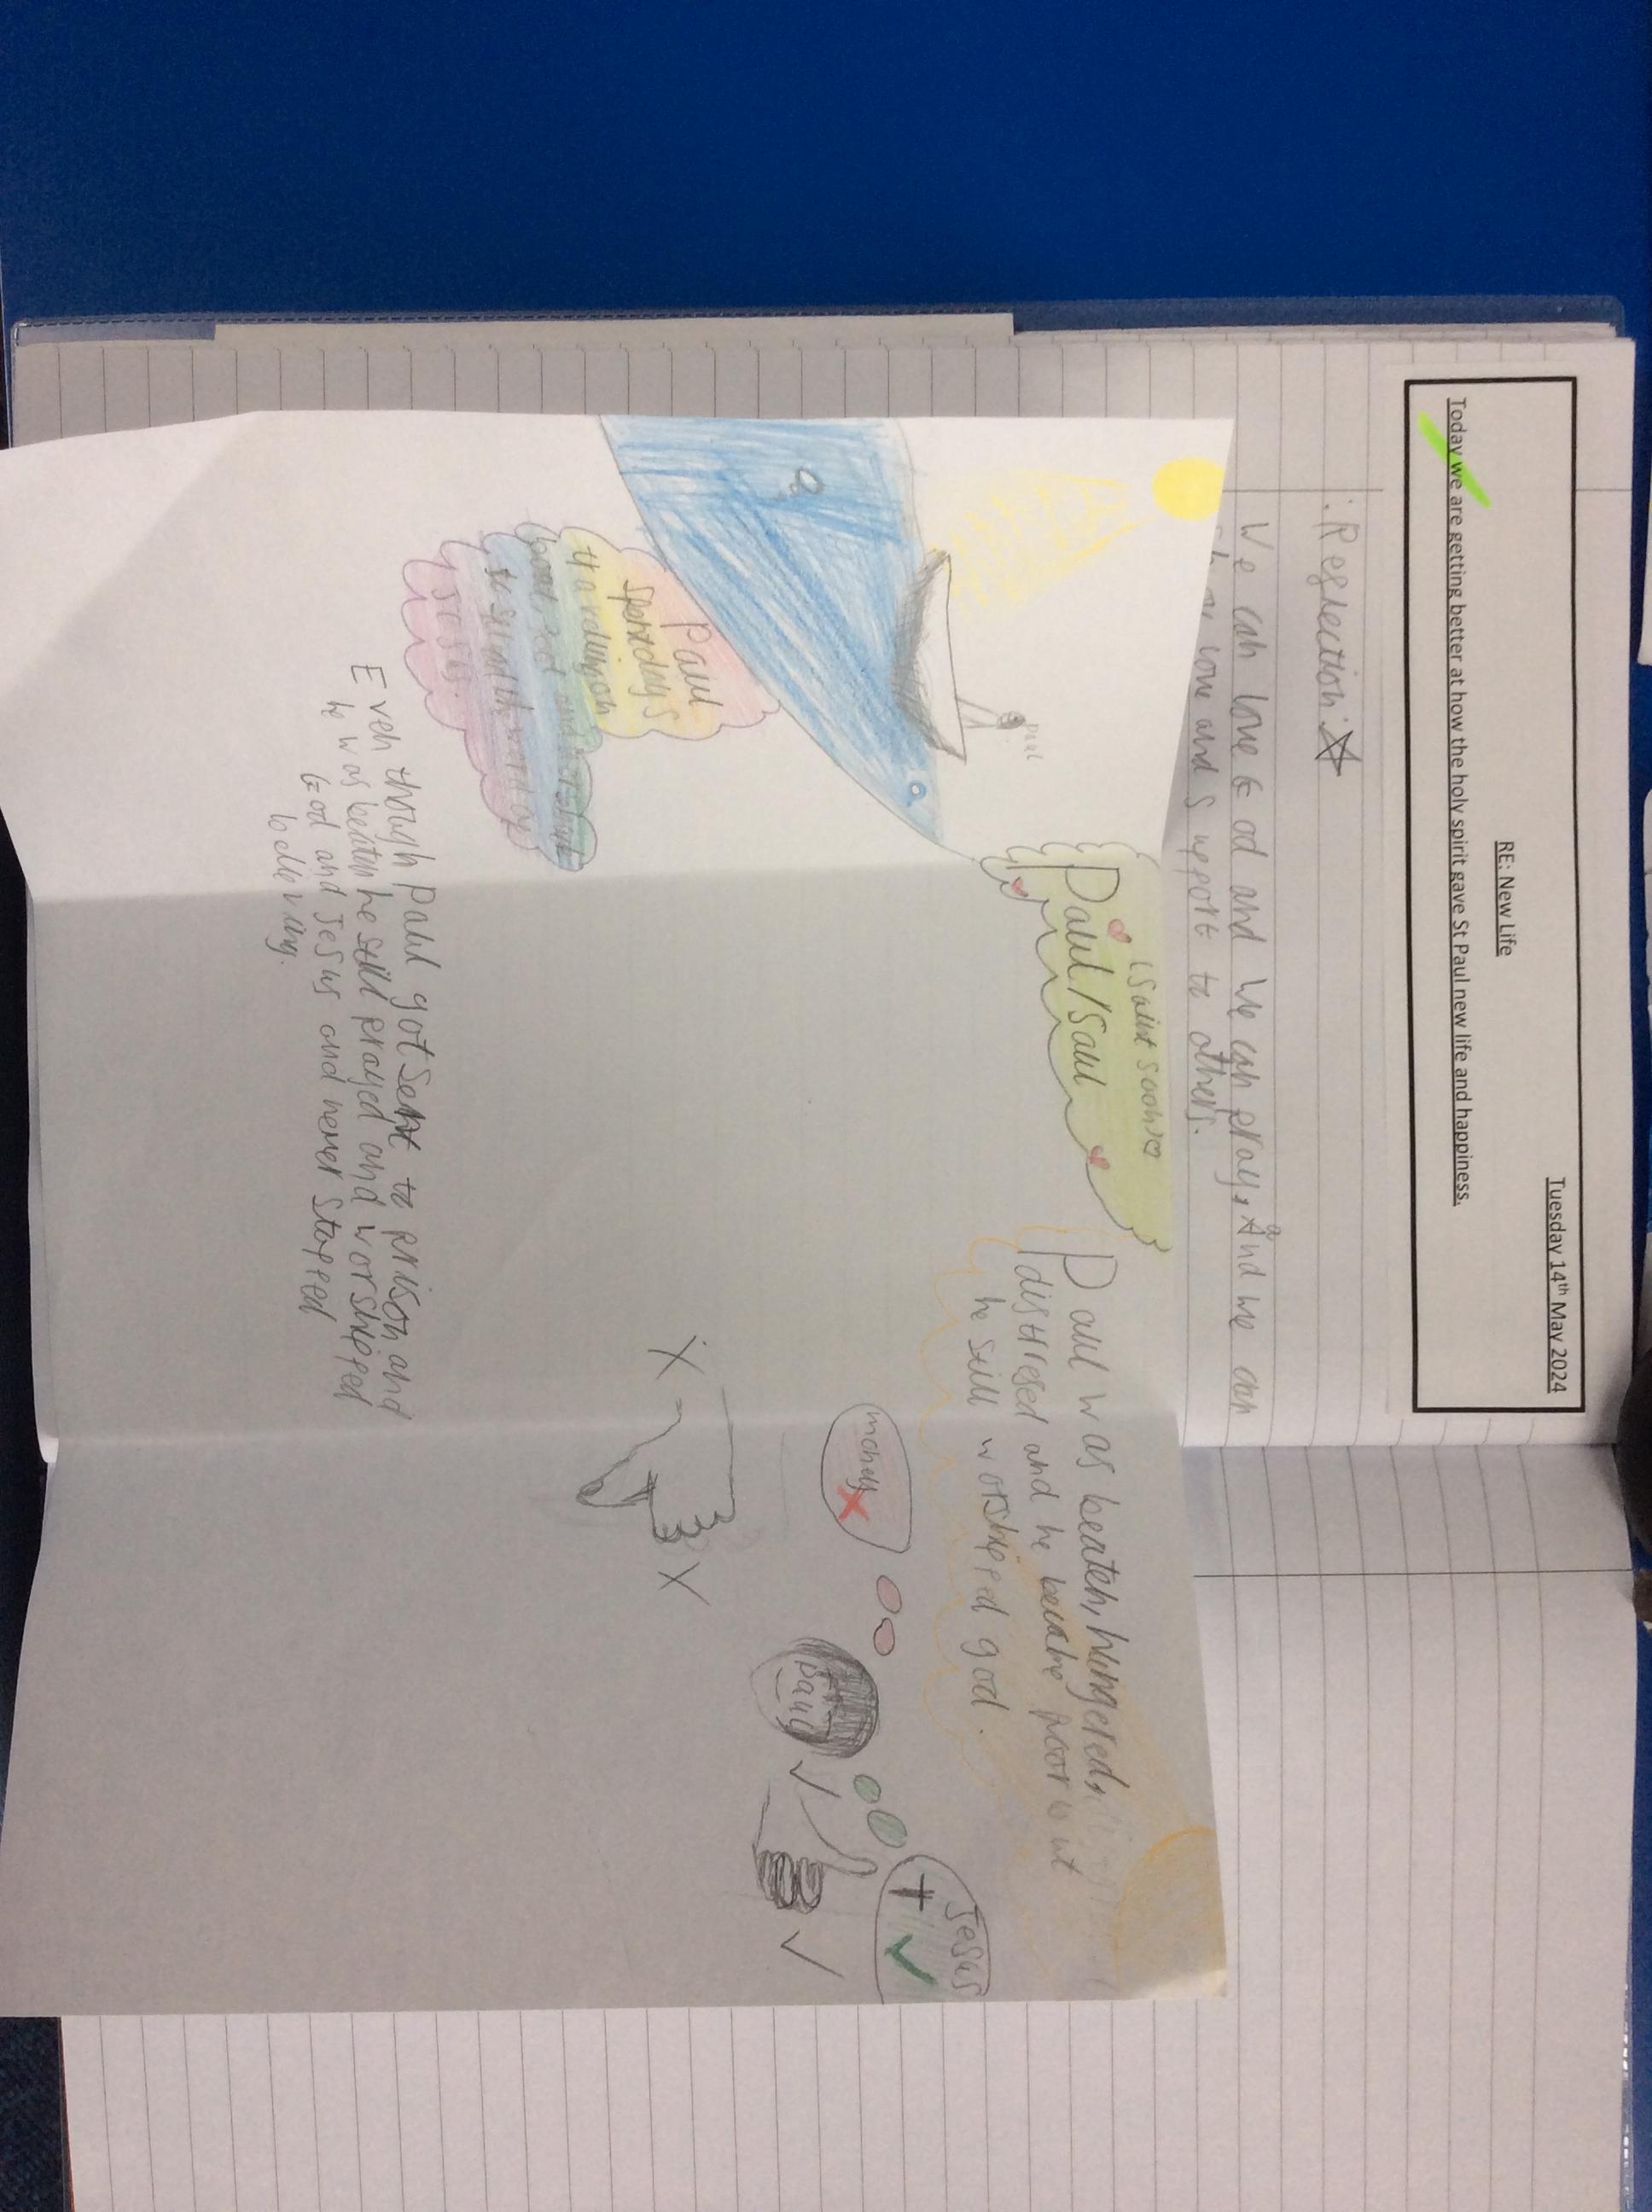 Tuesday 14th May 2024
RE: New Life
Today we are getting better at how the holy spirit gave St Paul new life and happiness.
Reglection
We can love God and we can pray, And we can
show love and support to others.
(Saint soon)
Paul/Saul
Paul was beaten, hungered,
distresed and he became poor but
he still worshipped god.
paul
Paul
spent days
travelling on
boat, foot and
to spread the word of
Jesus.
money
Jesus
paul
Even though paul got sent to prison and
he was beaten he still prayed and worshipped
God and Jesus and never stopped
beleiving.